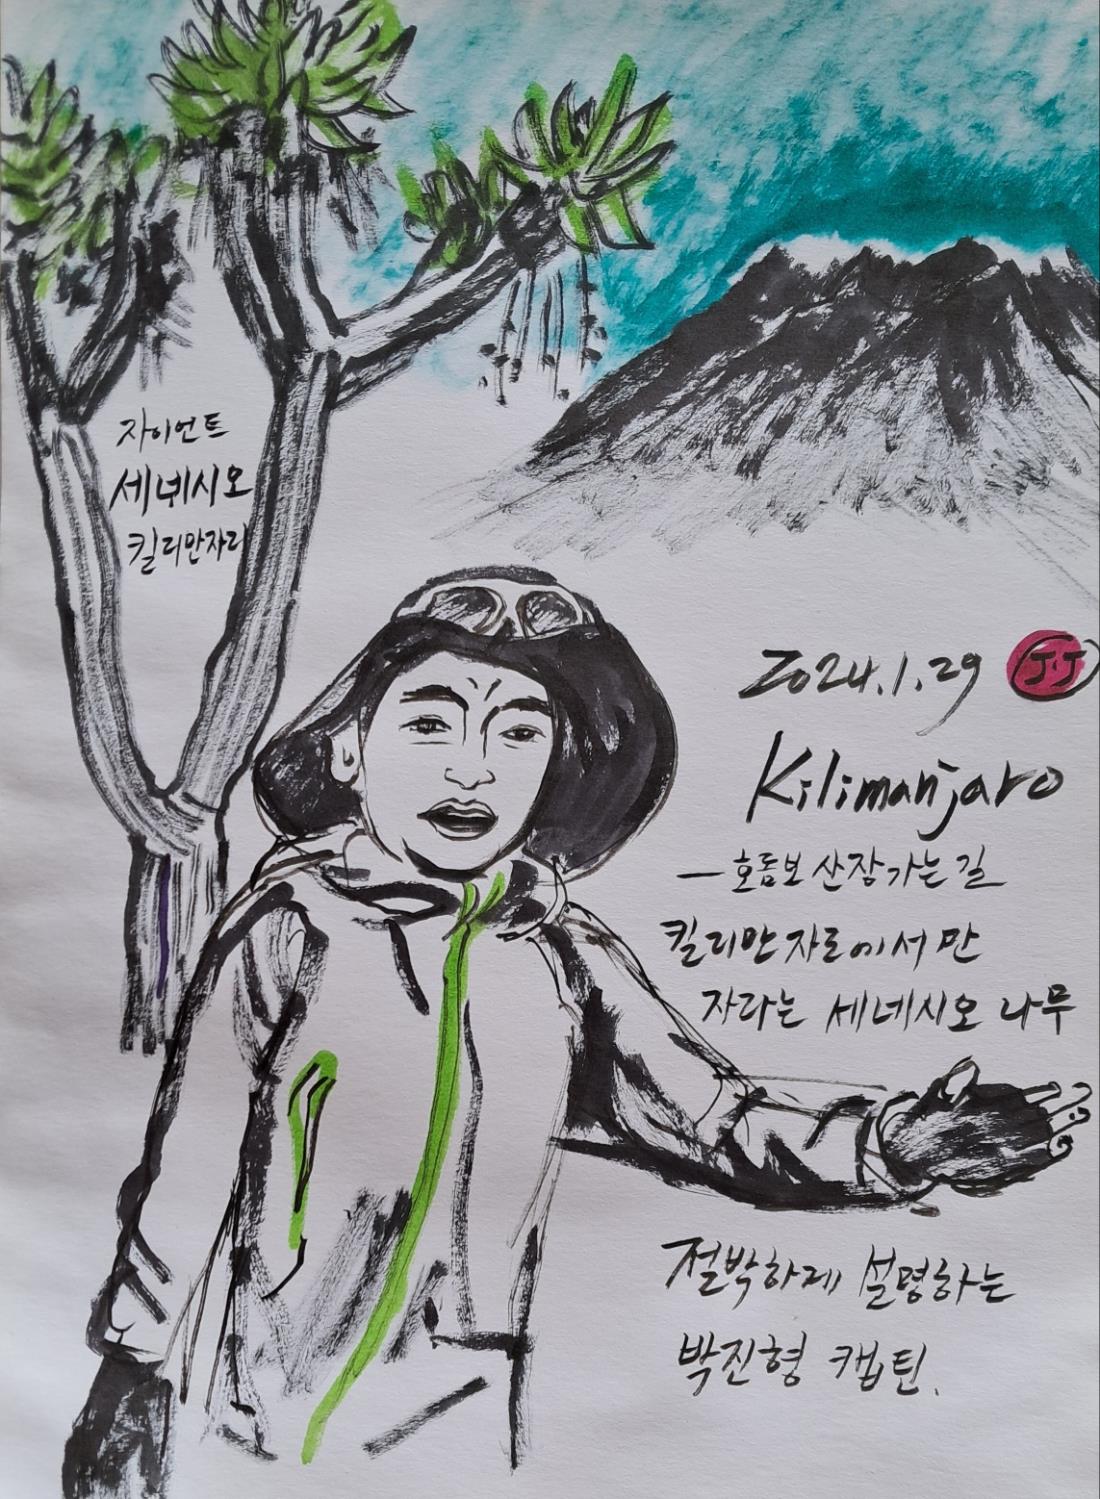 자이언트
세네시오
킬리만자리
2024.1.29 J.J
Kilimanjaro
－호롬보 산장가는 길
킬리만자로에서만
자라는 세네시오 나무
절박하게 설명하는
박진형 캡틴.